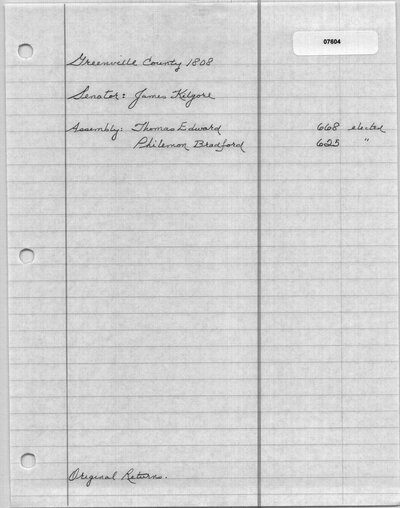 07604
Greenville County 1808
Senator: James Kilgore
Assembly: Thomas Edward 668 elected
Philemon Bradford 625 "
Original Returns.